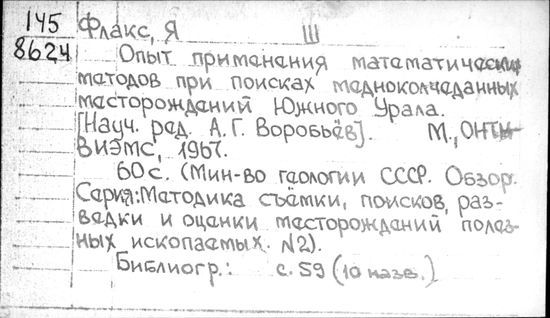 145
8624
Флакс, Я Ш
Опыт применения математических
методов при поисках медноколчеданных
месторождений Южного Урала.
[Науч. ред. А.Г. Воробьёв]. М., ОНТИ
ВИЭМС, 1967.
60 с. (Мин-во геологии СССР. Обзор.
Серия: Методика съёмки, поисков, раз-
ведки и оценки месторождений полез-
ных ископаемых. №2).
Библиогр.: с. 59 (10 назв.)